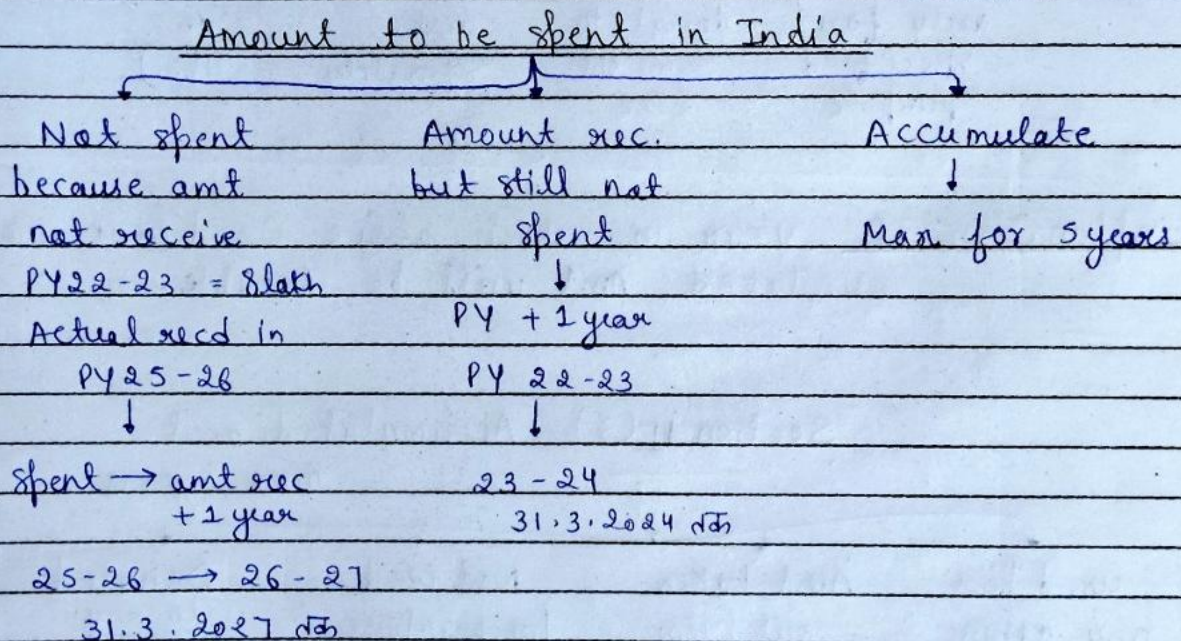 Amount to be spent in India
Not spent
because amt
not receive
PY22-23 = 8lakh
Actual recd in
PY25-26
↓
spent → amt rec
+1 year
25-26 → 26-27
31.3.2027 तक
Amount rec.
but still not
spent
↓
PY + 1 year
PY 22-23
↓
23-24
31.3.2024 तक
Accumulate
↓
Max for 5 years